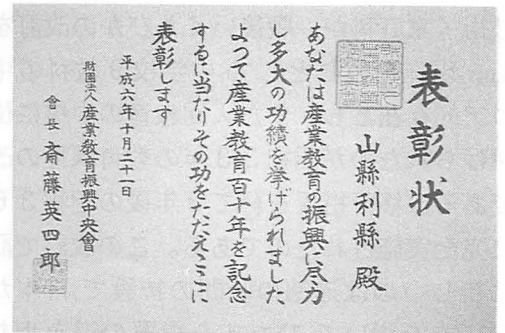 表彰状
山縣利縣 殿
あなたは産業教育の振興に尽力
し多大の功績を挙げられました
よって産業教育百十年を記念
するに当たりその功をたたえここに
表彰します
平成六年十月二十一日
財團法人 産業教育振興中央會
會長 斎藤英四郎